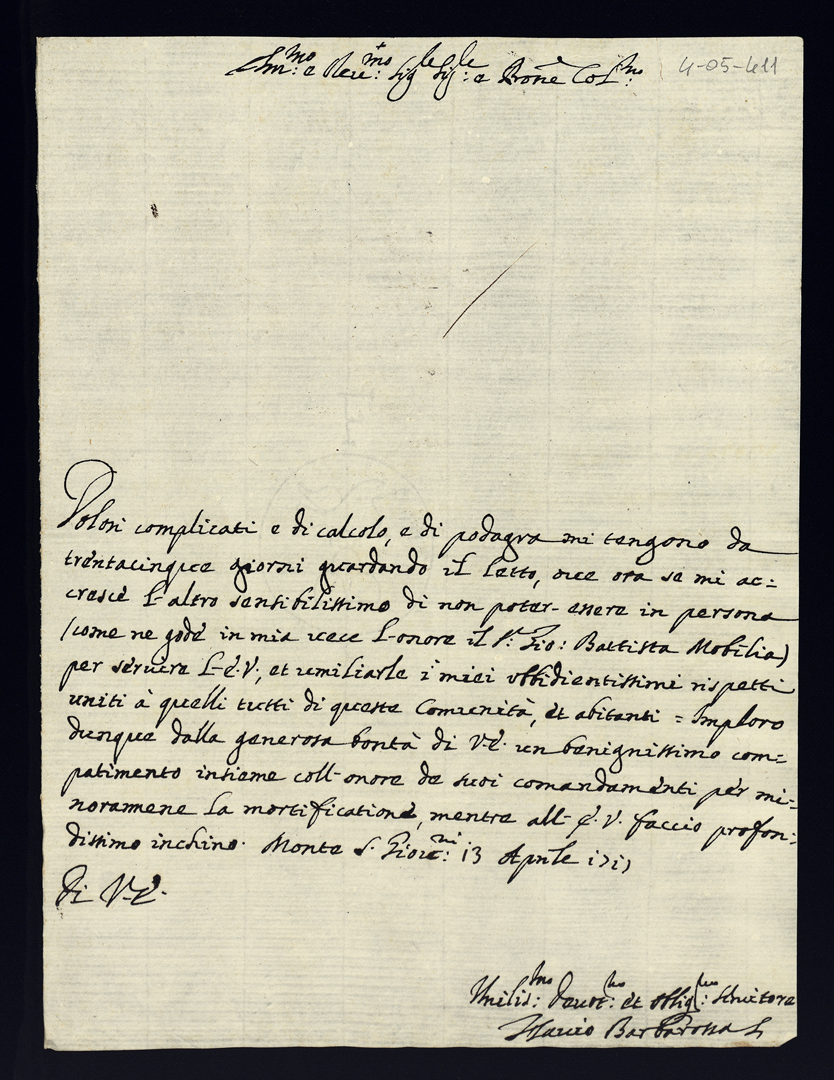 Em.mo e Reu.mo Sig.le Sig.le e Prone Col.mo
4-05-411
Dolori complicati e di calcolo, e di podagra mi tengono da
trentacinque giorni guardando il letto, one ora se mi ac=
cresce l'altro sensibilissimo di non poter essere in persona
(come ne gode in mia uece l'onore il S.r Gio: Battista Mobilia)
per seruire l'E.V., et umiliarle i miei obbidientissimi rispetti
uniti à quelli tutti di queste Comunità, et abitanti = Imploro
dunque dalla generosa bontà di V.E. un benignissimo com=
patimento insieme coll'onore de suoi comandamenti per mi=
norarmene la mortificatione, mentre all'E.V. faccio profon=
dissimo inchino. Monte S. Gioue:ni 13 Aprile 1717
Di V.E.
Umilis:mo Deuot:mo et Oblig:mo Seruitore
Barbarossa